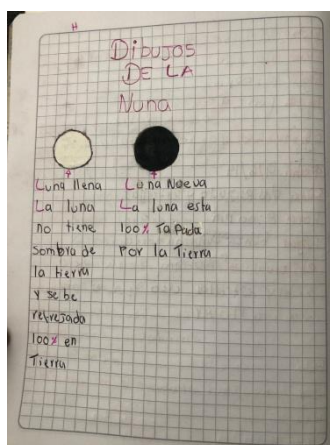 H
Dibujos
DE LA
Nuna
Luna llena
La luna
no tiene
sombra de
la tierra
y se be
refrejado
100% en
Tierra
Luna Nueva
La luna esta
100% Tapada
Por la Tierra